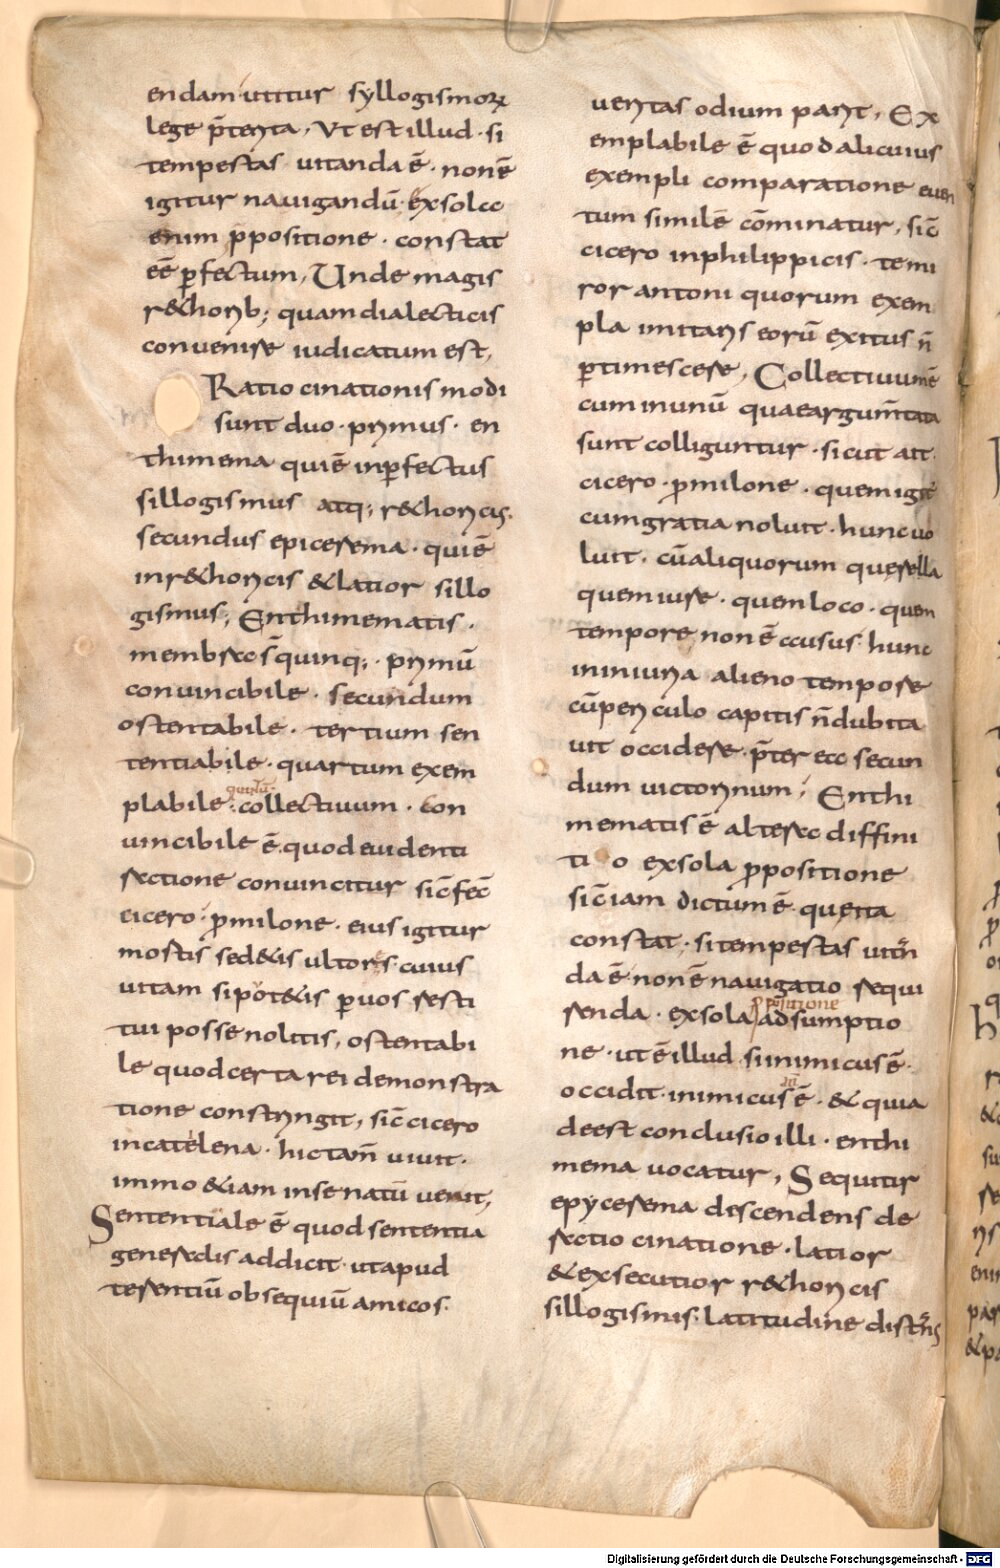 endam utitur syllogismoꝝ
lege p̄terita, Ut est illud · si
tempestas uitanda ē · non ē
igitur nauigandū · ex sola
enim ꝓpositione · constat
eē ꝑfectum, Unde magis
r&horib; quam dialecticis
conuenire iudicatum est,
Ratiocinationis modi
sunt duo · primus · en
thimema qui ē inꝑfectus
sillogismus atq; r&horicis.
secundus epicerema · qui ē
in r&horicis & latior sillo
gismus; Enthimematis ·
membra s̄ quinq; · primū
conuincibile · secundum
ostentabile · tertium sen
tentiabile · quartum exem
plabile · quintū · collectiuum · Con
uincibile ē quod euidenti
ratione conuincitur sic̄ fec̄
cicero · ꝓ milone · eius igitur
mortis sed&is ultores cuius
uitam si pot&is ꝑ uos resti
tui posse nolitis, ostentabi
le quod certa rei demonstra
tione constringit, sic̄ cicero
in catelena · hic tam̄ uiuit ·
immo &iam in senatū uenit,
Sententiale ē quod sententia
generalis addicit · ut apud
terentiū obsequiū amicos ·
ueritas odium parit, Ex
emplabile ē quod alicuius
exempli comparatione euen
tum simile cōminatur, sic̄
cicero in philippicis · te mi
ror antoni quorum exem
pla imitaris eorū exitus n̄
ꝑtimescere, Collectiuum ē
cum in unū quae argum̄tata
sunt colliguntur · sicut ait ·
cicero · ꝓ milone · quem igit̄
cum gratia noluit · hunc uo
luit · cū aliquorum querella
quem iure · quem loco · quem
tempore non ē ausus · hunc
ininiuria alieno tempore
cū periculo capitis n̄ dubita
uit occidere · p̄ter ea secun
dum uictorinum; Enthi
mematis ē altera diffini
ti o ex sola ꝓpositione
sic̄ iam dictum ē que ita
constat · si tempestas uitan̄
da ē non ē nauigatio requi
renda · ex sola ꝓpositione adsumptio
ne · ut ē illud si inimicus ē ·
occidit · inimicus ē · & quia
deest conclusio illi · enthi
mema uocatur, Sequitir
epycerema descendens de
ratiocinatione · latior
& exsecutior r&horicis
sillogismis · latitudine
Digitalisierung gefördert durch die Deutsche Forschungsgemeinschaft - DFG